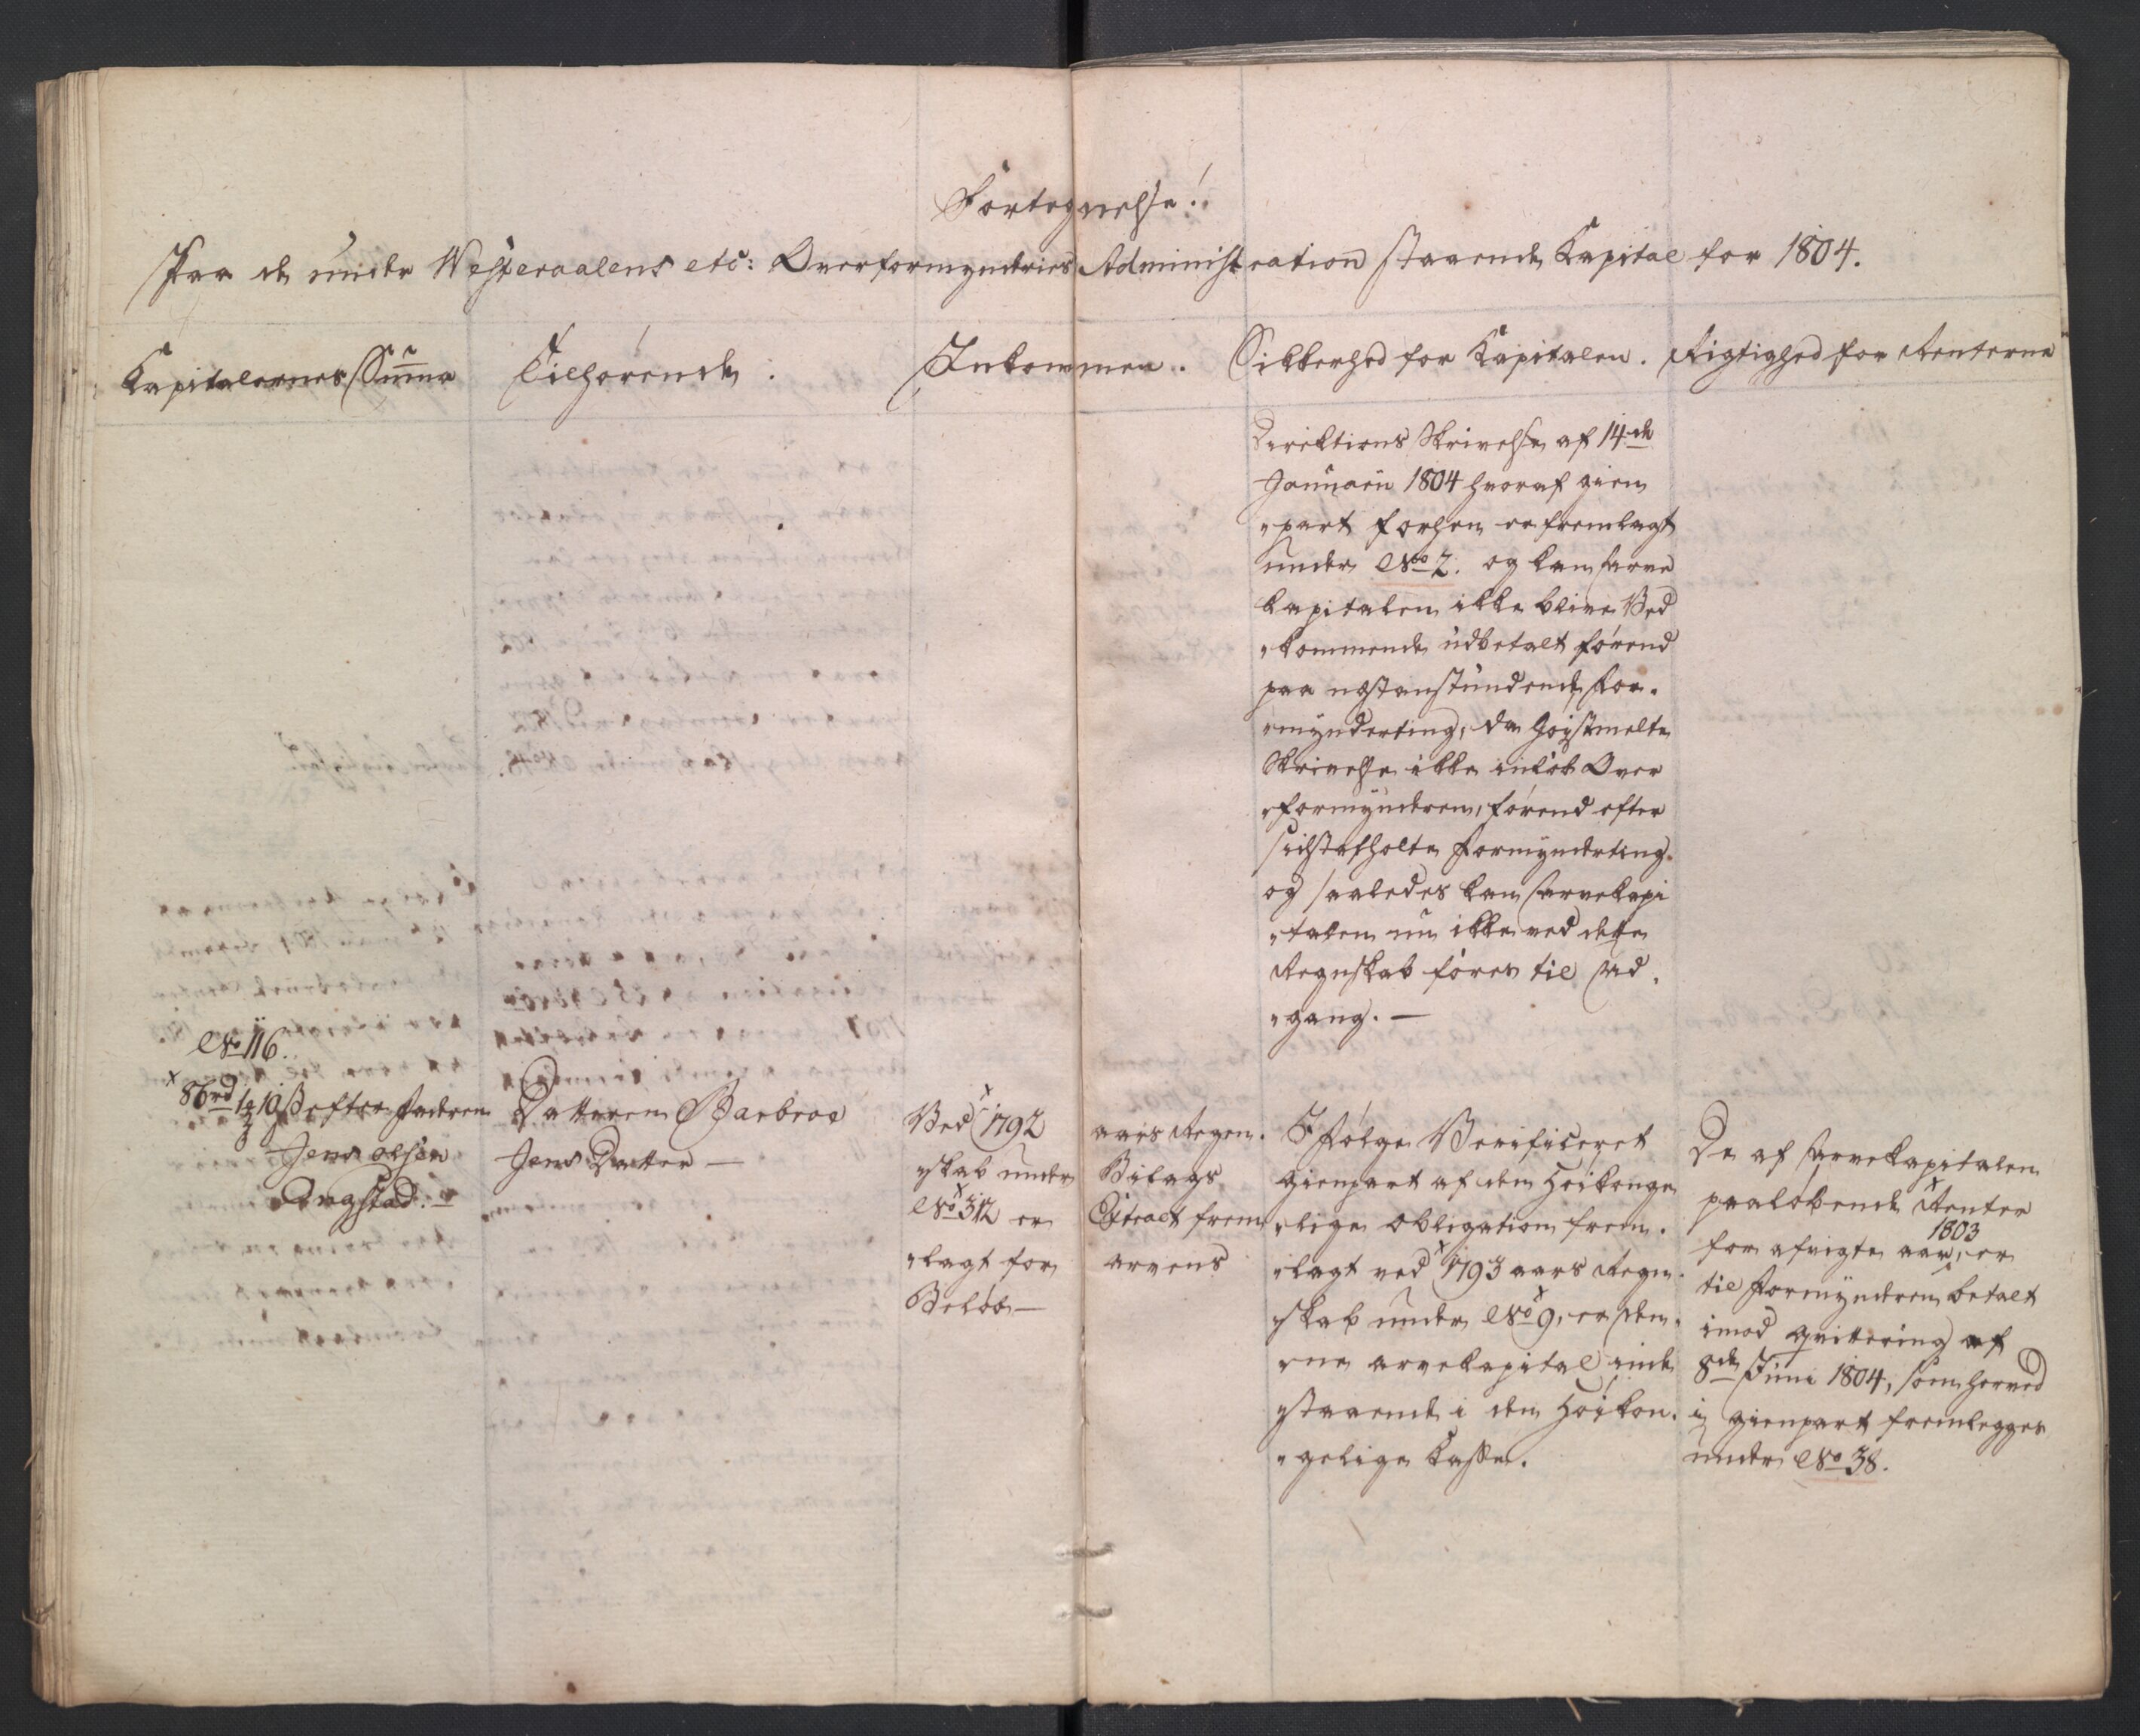 Fortegnelse!
Paa de under Westeraalens etc: Overformynderies Administration staaende Kapital for 1804.
Kapitalernes Summa
Tilhørende.
Inkommen.
Sikkerhed for Kapitalen.
Rigtighed for Renterne
Direktions Skrivelse af 14de
Januarii 1804 hvoraf gien
"part forhen er fremlagt
under No 2. og kan Arve
kapitalen ikke blive Ved
"kommende udbetalt førend
paa næstanstundende For-
"mynderting, da høistmelte
Skrivelse ikke indløb Over
"formynderen, førend efter
sidstafholte Formynderting.
og saaledes kan Arvekapi
"talen nu ikke ved dette
Regnskab føres til Ud-
"gang. —
No 116.
86rd 1 10 ß efter Faderen
Jens Olsen
Ongstad. —
Datteren Barbroe
Jens Datter —
Ved 1792 aars Regen-
"skab under Bilags
No 312 er Extract frem
"lagt for arvens
Beløb —
I Følge Verificeret
gienpart af den Høikonge
"lige Obligation frem-
"lagt ved 1793 aars Regn-
"skab under No 9, er den-
"ne arvekapital inde
"staaende i den Høikon-
"gelige Casse.
De af Arvekapitalen
paaløbende Renter
for afvigte aar, 1803 er
til Formynderen betalt
imod Qvittering af
8de Juni 1804, som herved
i gienpart fremlegges
under No 38.